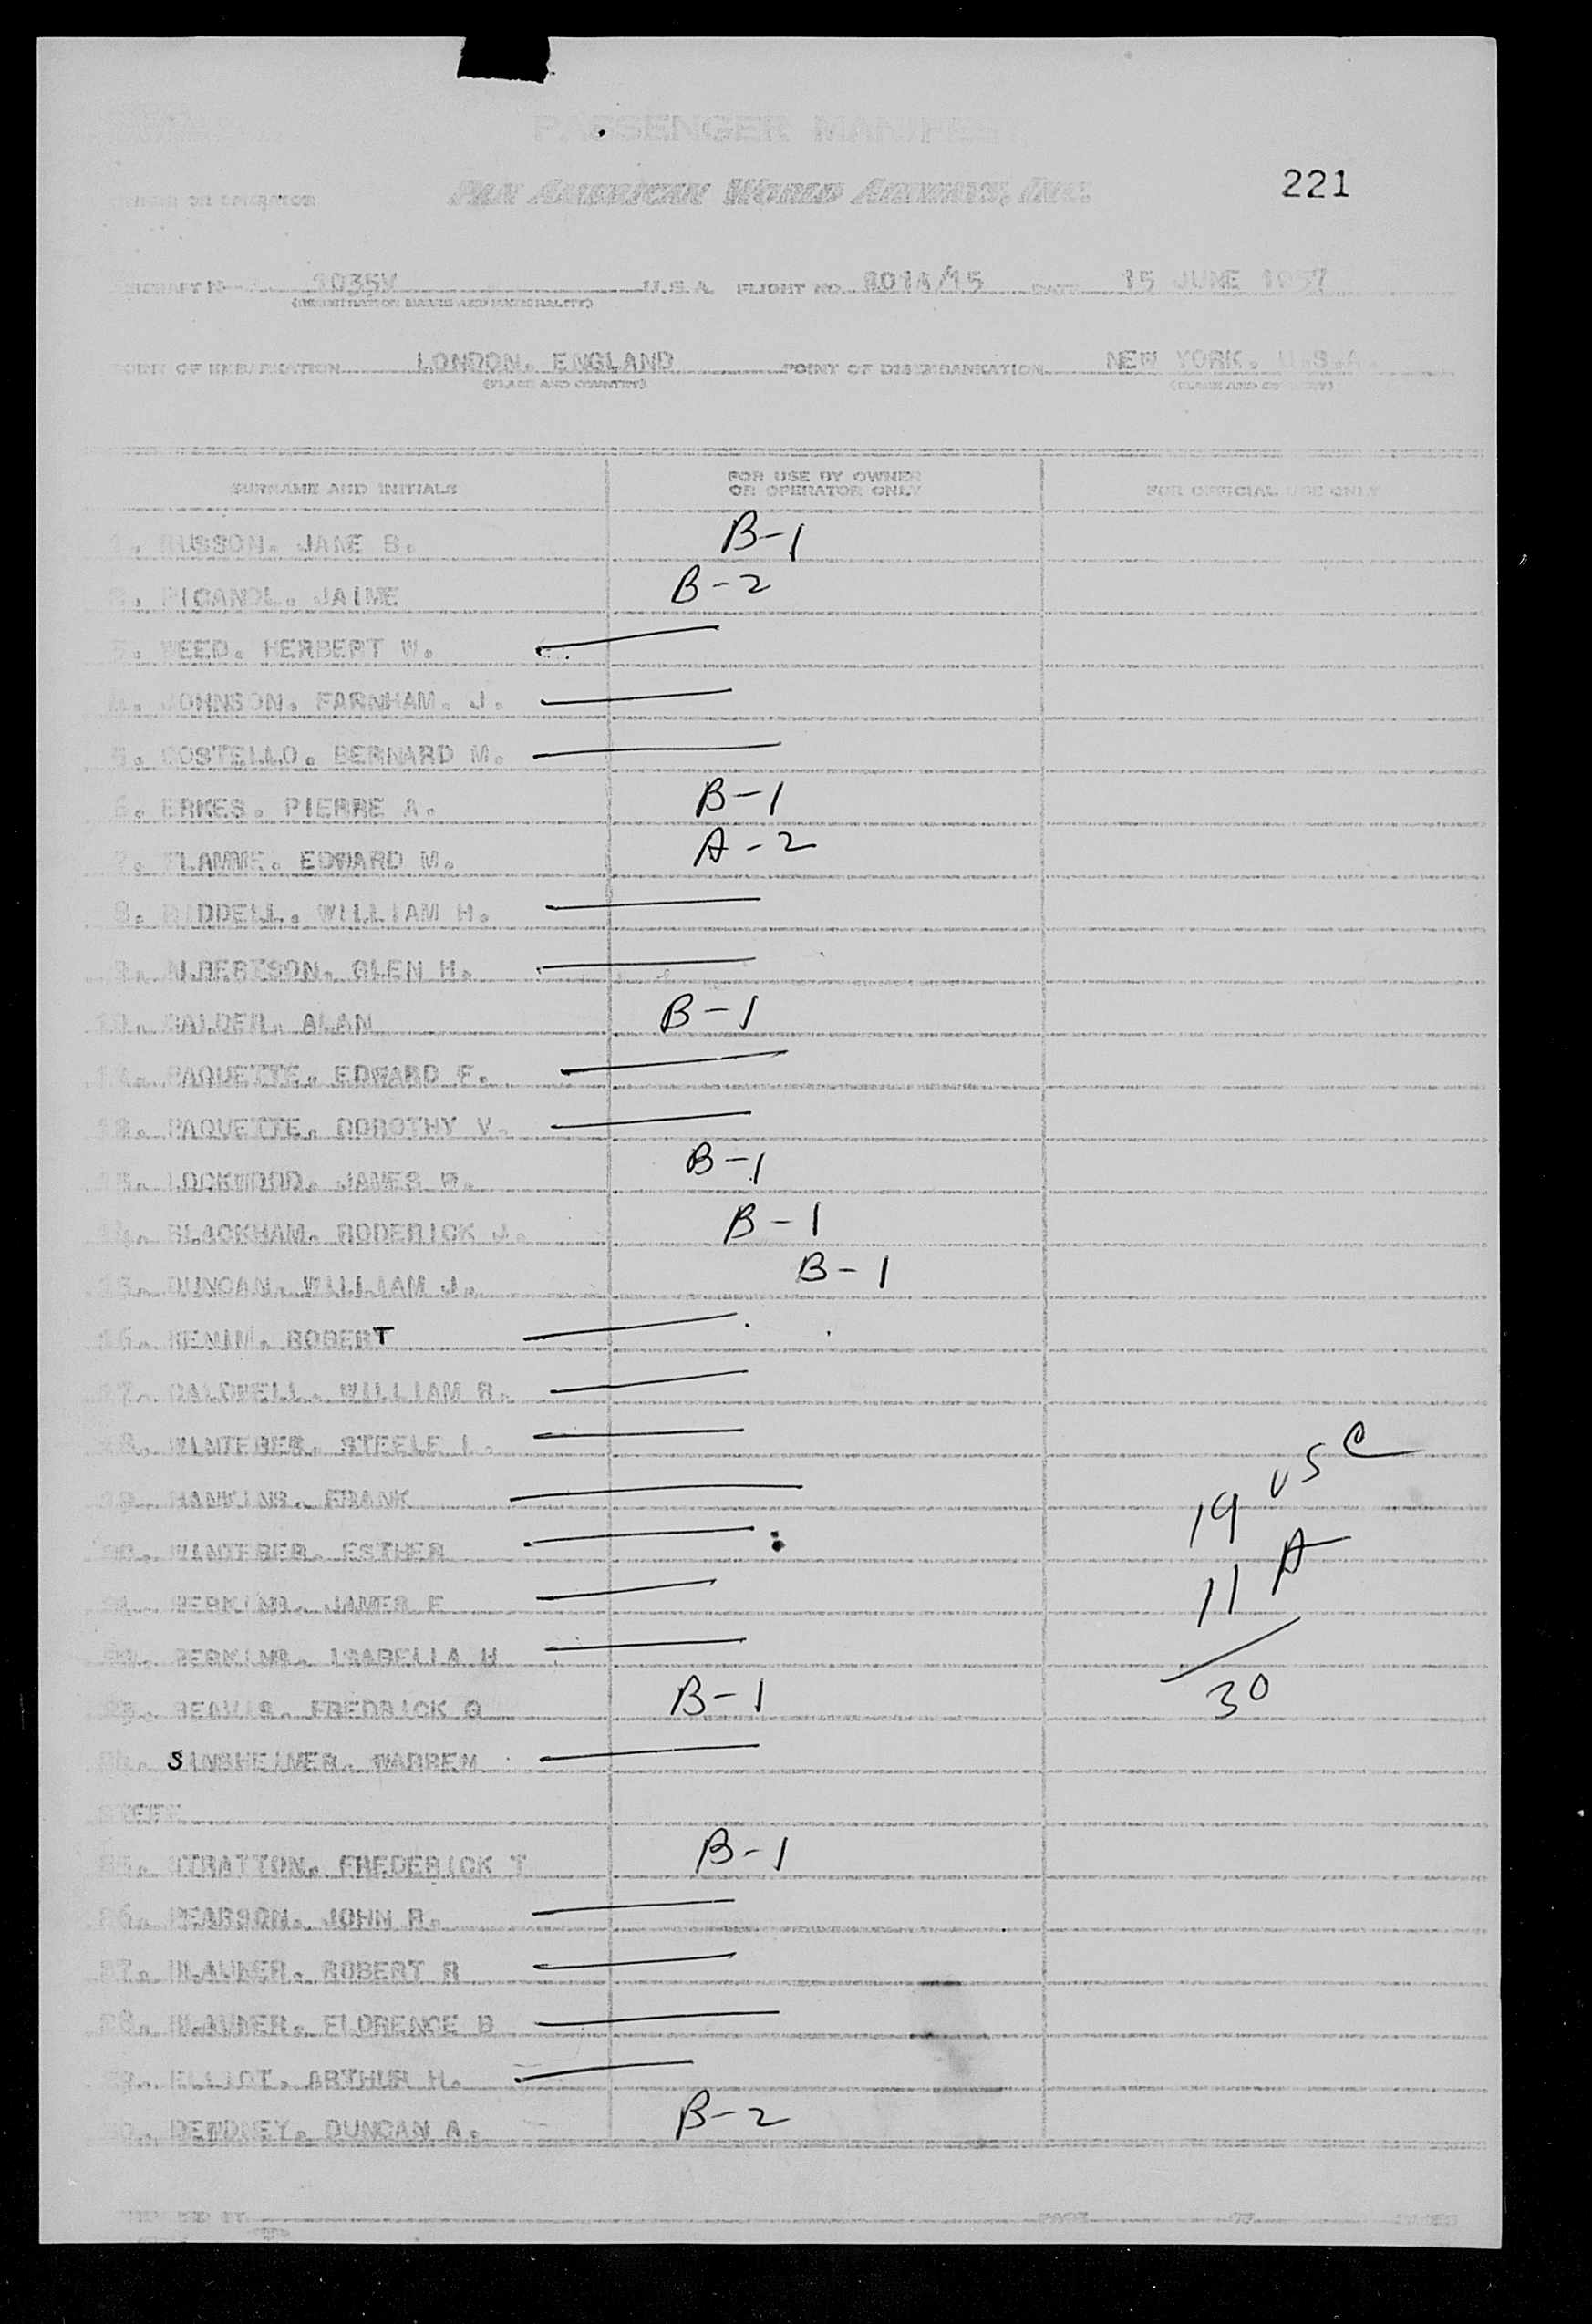 PASSENGER MANIFEST
221
OWNER OR OPERATOR PAN AMERICAN WORLD AIRWAYS, INC.
AIRCRAFT 1035V U.S.A. FLIGHT NO. DATE 15 JUNE 1957
(REGISTRATION MARKS AND NATIONALITY)
POINT OF EMBARKATION LONDON, ENGLAND POINT OF DISEMBARKATION NEW YORK, U.S.A.
(PLACE AND COUNTRY) (PLACE AND COUNTRY)
SURNAME AND INITIALS FOR USE BY OWNER OR OPERATOR ONLY FOR OFFICIAL USE ONLY
1. JANE B. B-1
2. JAIME B-2
3. WEED. HERBERT W.
4. JOHNSON. FARNHAM. J.
5. COSTELLO. BERNARD M.
6. ERKES. PIERRE A. B-1
7. FLAMME. EDWARD M. A-2
8. RIDDELL. WILLIAM H.
9. GLEN H.
10. ALAN B-1
11. PAQUETTE. EDWARD F.
12. PAQUETTE. DOROTHY V.
13. LOCKWOOD. JAMES B-1
14. BLACKHAM. RODERICK J. B-1
15. DUNCAN. WILLIAM J. B-1
16. ROBERT
17. CALDWELL. WILLIAM R.
18. STEELE
19. FRANK
19 USC
20. ESTHER
11 A
21. JAMES E
22. ISABELLA H
23. FREDRICK B-1
30
24. SINSHEIMER. WARREN
25. STRATTON. FREDERICK T B-1
26. PEARSON. JOHN R.
27. BLAUNER. ROBERT R
28. BLAUNER. FLORENCE B
29. ELLIOT. ARTHUR H.
30. DEWDNEY. DUNCAN A. B-2
PAGE OF PAGES